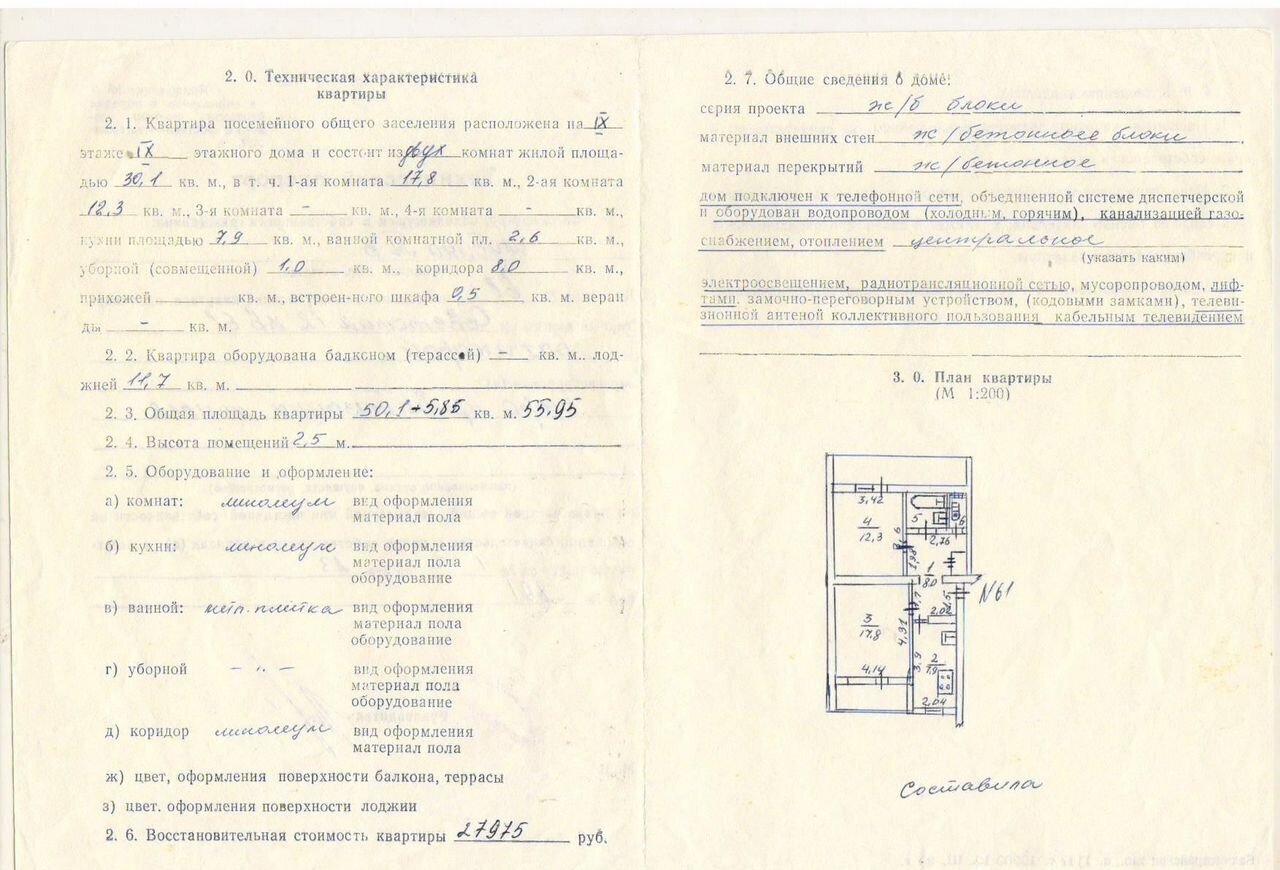 2. 0. Техническая характеристика
квартиры
2. 1. Квартира посемейного общего заселения расположена на IX
этаже IX этажного дома и состоит из двух комнат жилой площа-
дью 30,1 кв. м., в т. ч. 1-ая комната 17,8 кв. м., 2-ая комната
12,3 кв. м., 3-я комната - кв. м., 4-я комната - кв. м.,
кухни площадью 7,9 кв. м., ванной комнатной пл. 2,6 кв. м.,
уборной (совмещенной) 1,0 кв. м., коридора 8,0 кв. м.,
прихожей кв. м., встроен-ного шкафа 0,5 кв. м. веран
ды - кв. м.
2. 2. Квартира оборудована балконом (терассой) - кв. м.. лод-
жией 11,7 кв. м.
2. 3. Общая площадь квартиры 50,1+5,85 кв. м. 55,95
2. 4. Высота помещений 2,5 м.
2. 5. Оборудование и оформление:
а) комнат: линолеум вид оформления
материал пола
б) кухни: линолеум вид оформления
материал пола
оборудование
в) ванной: метл. плитка вид оформления
материал пола
оборудование
г) уборной - " - вид оформления
материал пола
оборудование
д) коридор линолеум вид оформления
материал пола
ж) цвет, оформления поверхности балкона, террасы
з) цвет. оформления поверхности лоджии
2. 6. Восстановительная стоимость квартиры 27975 руб.
2. 7. Общие сведения о доме:
серия проекта ж/б блоки
материал внешних стен ж/бетонное блоки
материал перекрытий ж/бетонное
дом подключен к телефонной сети, объединенной системе диспетчерской
и оборудован водопроводом (холодным, горячим), канализацией газо-
снабжением, отоплением центральное
(указать каким)
электроосвещением, радиотрансляционной сетью, мусоропроводом, лиф-
тами, замочно-переговорным устройством, (кодовыми замками), телеви-
зионной антеной коллективного пользования кабельным телевидением
3. 0. План квартиры
(М 1:200)
3,42
5
6
4
12,3
2,76
1,98
1
8,0
N61
2,02
3
17,8
4,31
3,9
2
7,9
4,14
2,04
Составила